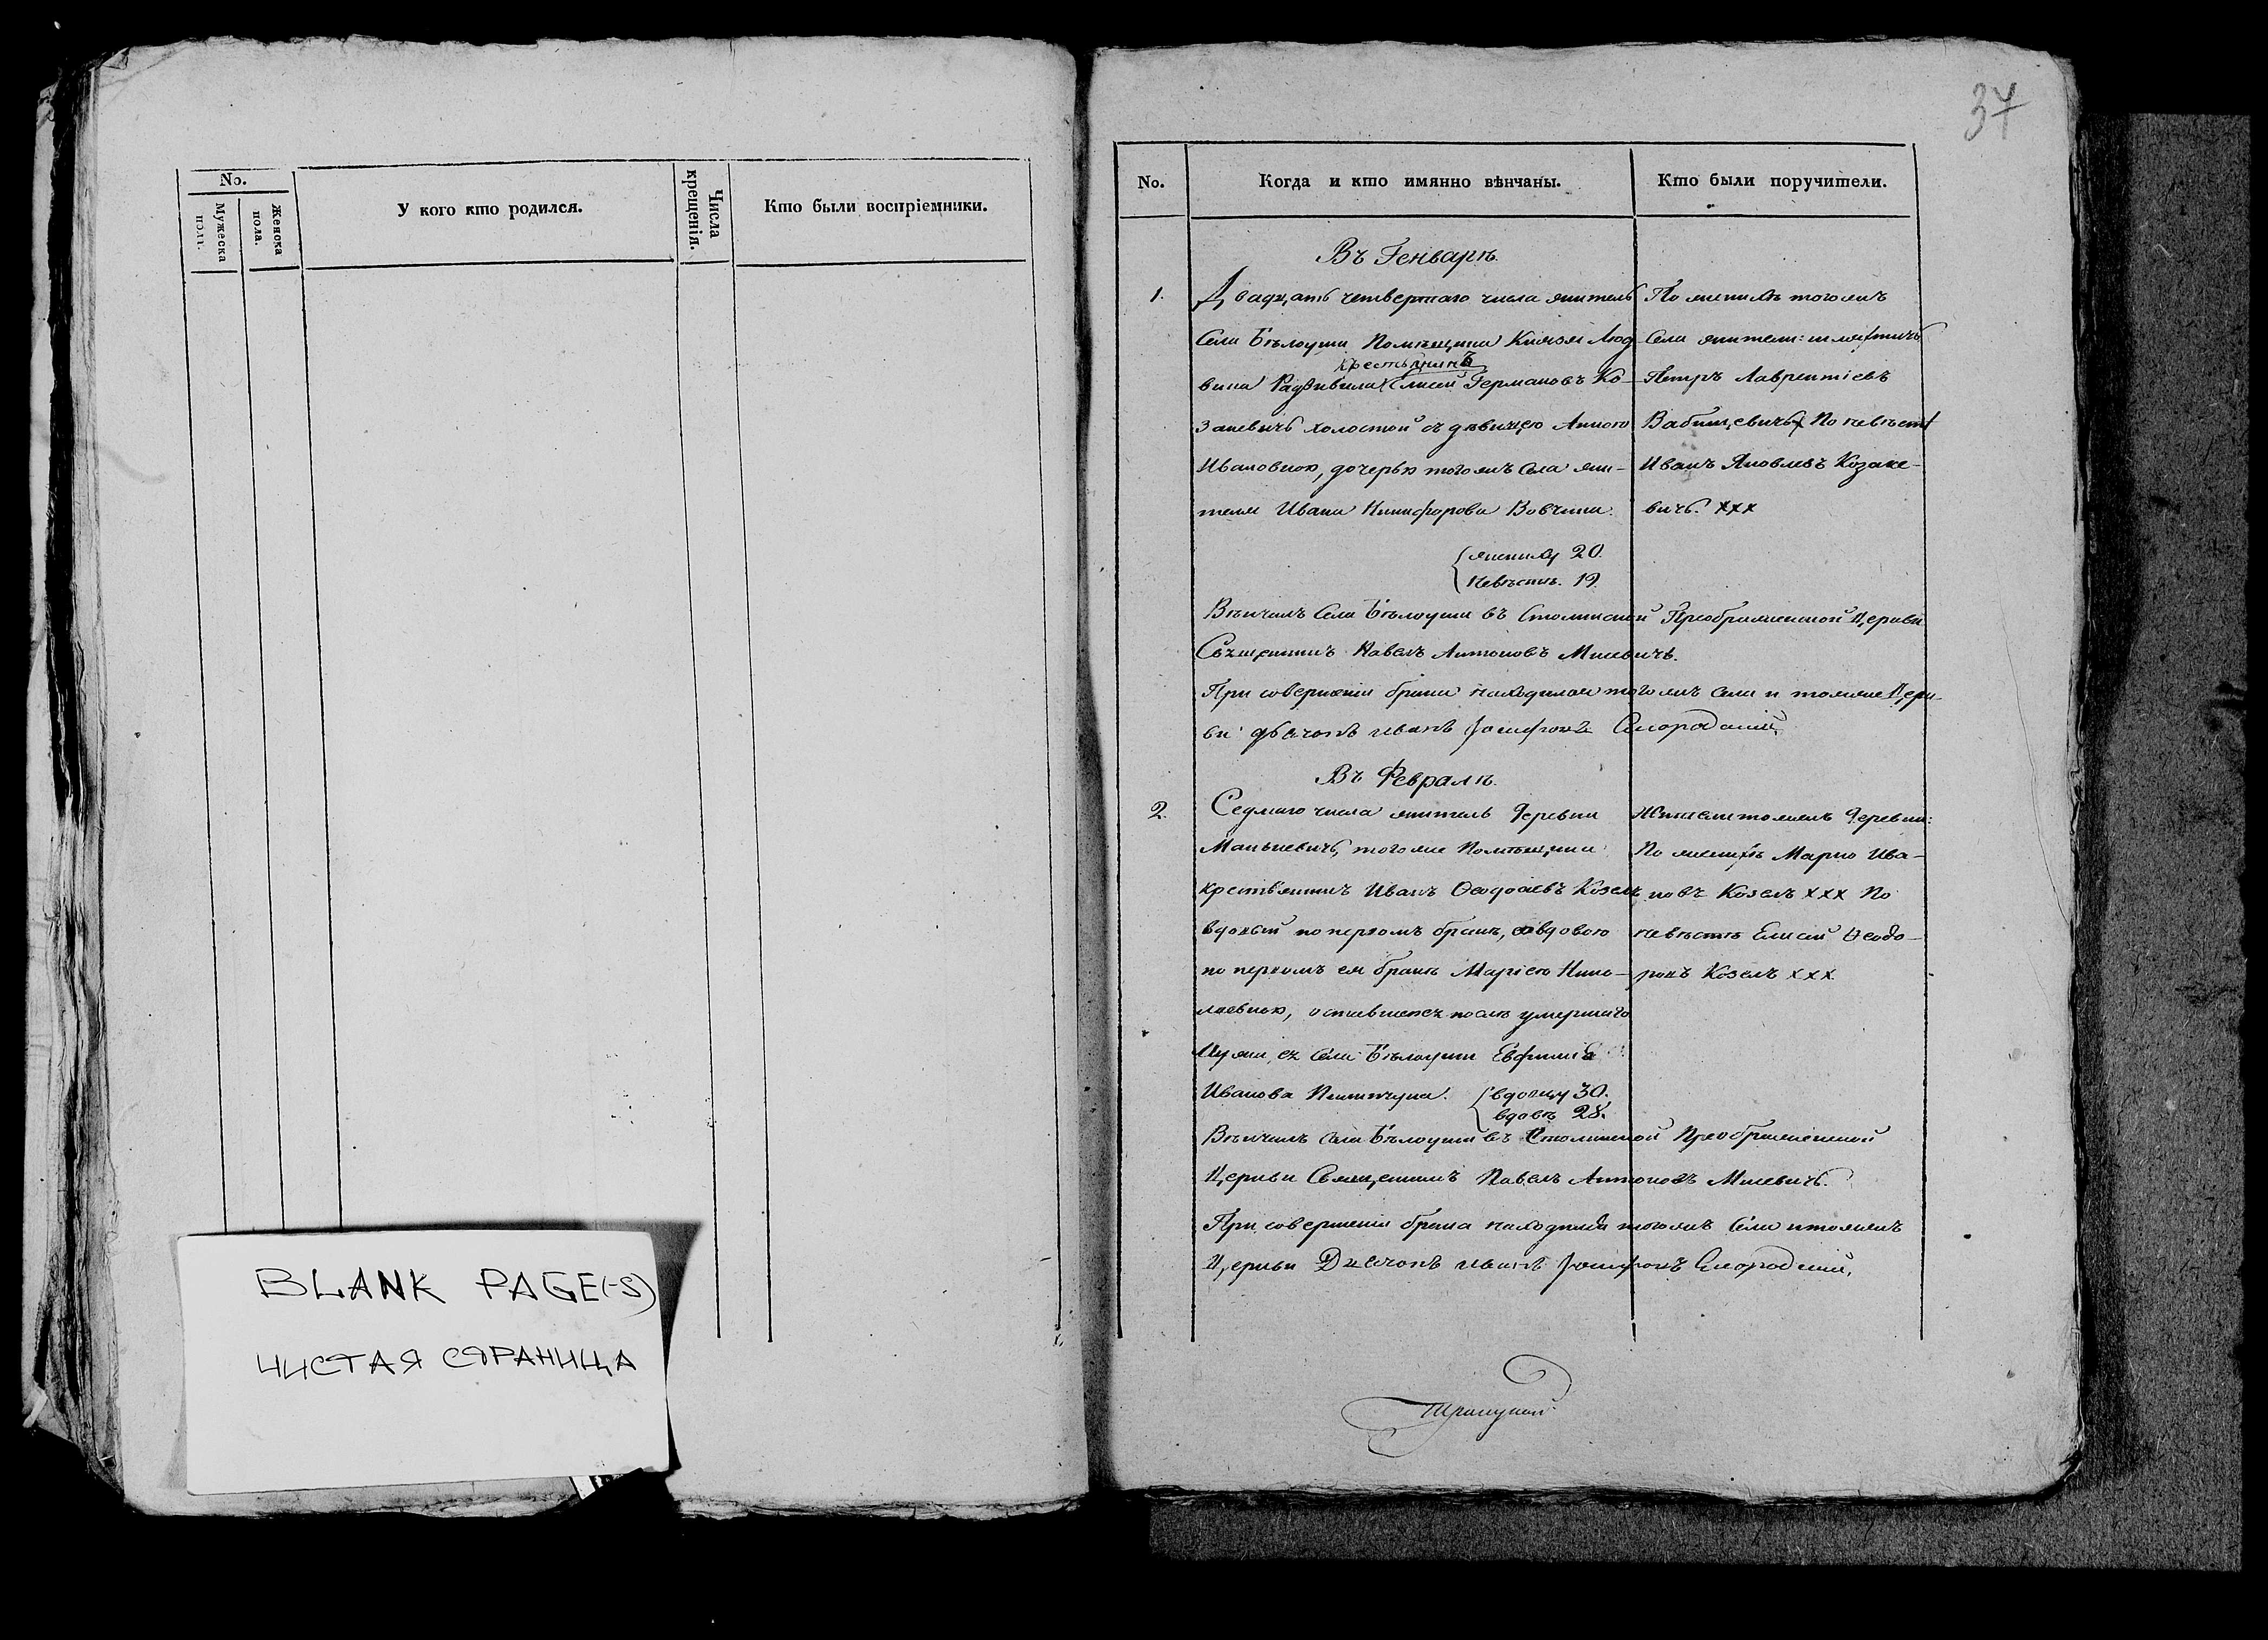 No.
Мужеска пола.
Женска пола.
У кого кто родился.
Числа крещенія.
Кто были воспріемники.
BLANK PAGE(-S)
ЧИСТАЯ СТРАНИЦА
37
No.
Когда и кто имянно вѣнчаны.
Кто были поручители.
Въ Генварѣ.
1.
Двадцать четвертаго числа житель
Села Бѣлоуши Помѣщика Князя Люд-
крестьянинъ
вика Радзивила Елисей Германовъ Ко-
заневичь холостой съ дѣвицею Анною
Ивановною, дочерью тогожъ Села жи-
теля Ивана Никифорова Вовчика.
жениху 20.
невѣстѣ. 19.
По женихѣ тогожъ
Села жители:
Петръ Лаврентіевъ
По невѣстѣ
Иванъ Яковлевъ Козане-
вичь. ххх
Вѣнчалъ Села Бѣлоуши въ Столинской Преображенской Церкви
Священникъ Павелъ Антоновъ Мисевичь.
При совершеніи брака находился тогожъ Села и тояже Церк-
ви дьячокъ иванъ
Въ Февралѣ.
2.
Седмаго числа житель Деревни
Манькевичь, тогоже Помѣщика
крестьянинъ Иванъ Ѳеодосіевъ Козелъ
вдовый по первомъ бракѣ, со вдовою
по первомъ ея бракѣ Маріею Нико-
лаевною, оставшеюся послѣ умершаго
Мужа ея Села Бѣлоуши Евфимія
Иванова
вдовцу 30.
вдовѣ 28.
Жители тояжъ Деревни:
По женихѣ Марко Ива-
новъ Козелъ ххх По
невѣстѣ Елисей Ѳеодо-
ровъ Козелъ ххх.
Вѣнчалъ Села Бѣлоуши въ Столинской Преображенской
Церкви Священникъ Павелъ Антоновъ Мисевичь.
При совершеніи брака находился тогожъ Села и тояжъ
Церкви Дьячокъ иванъ